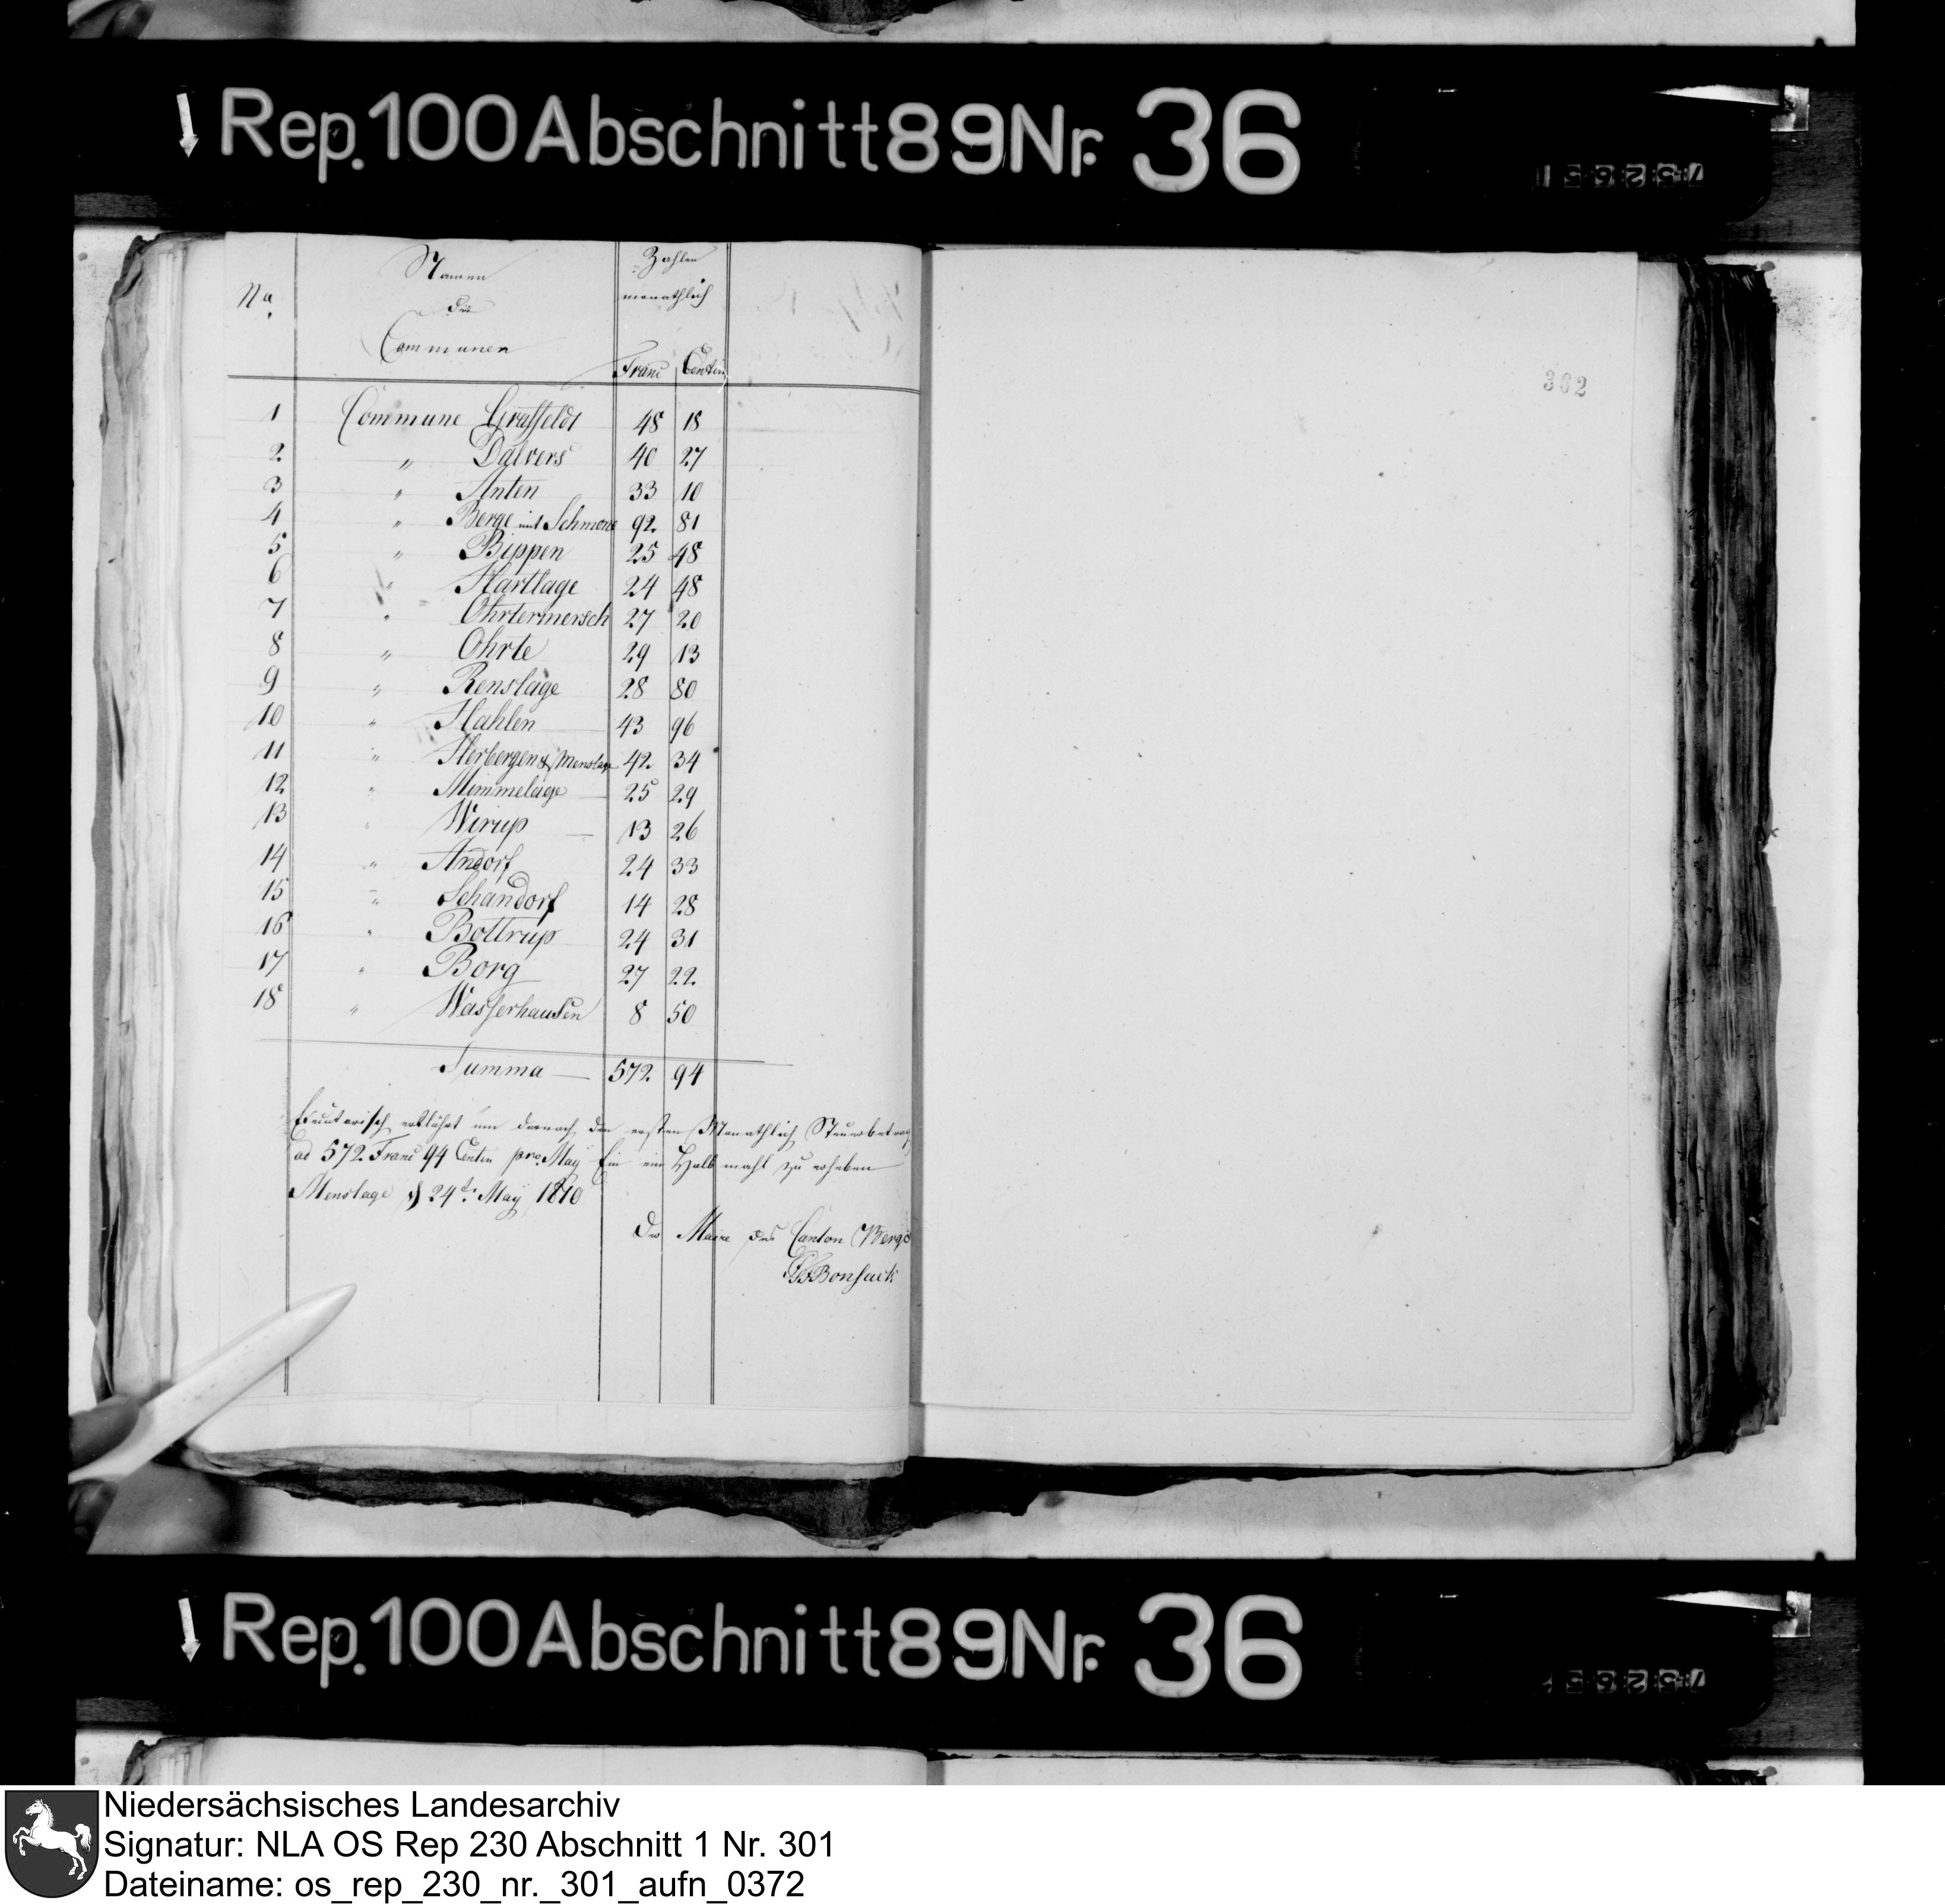 Rep. 100 Abschnitt 89 Nr. 36
No. Namen Zahlen
der monathlich
Communen Franc Centim
362
1 Commune Graffeldt 48 18
2 " Dalvers 40 27
3 " Anten 33 10
4 " Berge mit Schmone 92 81
5 " Bippen 25 48
6 " Hartlage 24 48
7 " Ohrtermersch 27 20
8 " Ohrte 29 13
9 " Renslage 28 80
10 " Hahlen 43 96
11 " Herbergen & Menslage 42 34
12 " Mimmelage 25 29
13 " Wirup — 13 26
14 " Andorf 24 33
15 " Schandorf 14 28
16 " Bottrup 24 31
17 " Borg 27 22
18 " Wasserhausen 8 50
Summa — 572 94
erklährt um darnach den ersten Monathlich Steuerbetrag
ad 572 Franc 94 Centim pro May ein Halb mahl zu erheben
Menslage d 24t May 1810
Der Maire des Canton Berge
Bonsack
Rep. 100 Abschnitt 89 Nr. 36
Niedersächsisches Landesarchiv
Signatur: NLA OS Rep 230 Abschnitt 1 Nr. 301
Dateiname: os_rep_230_nr._301_aufn_0372